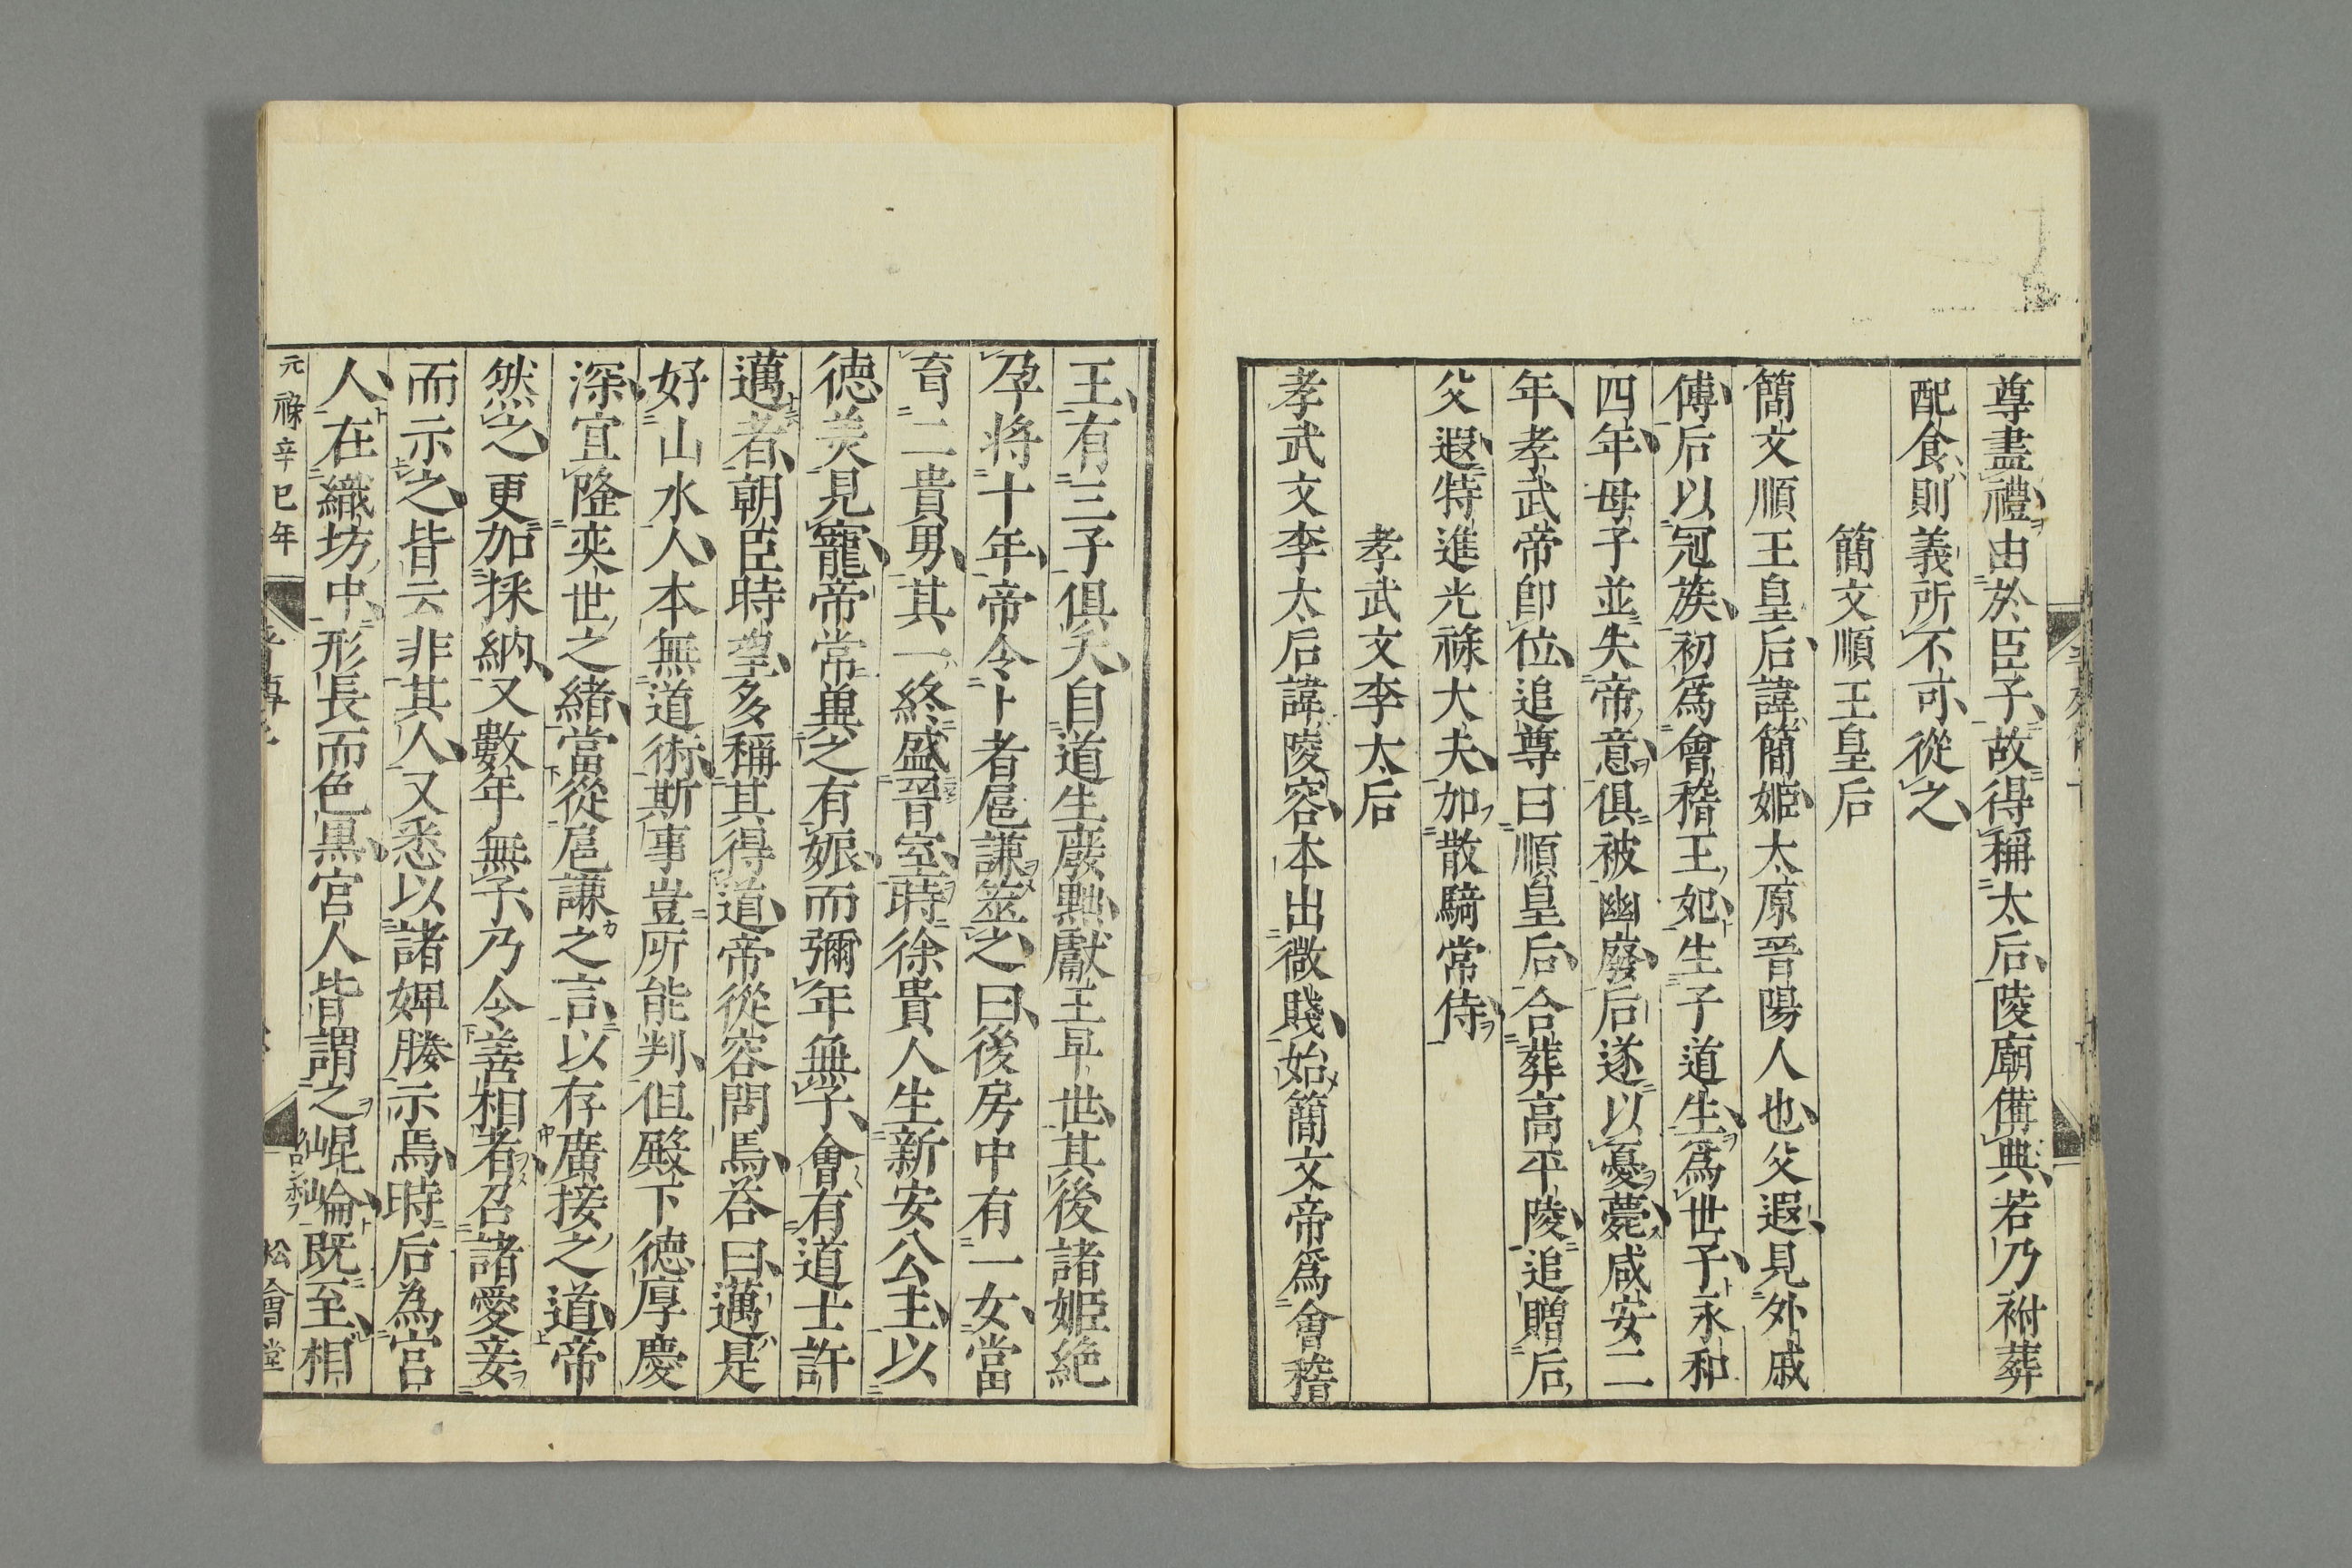 尊盡禮由於臣子故得稱太后陵廟備典若乃祔葬
配食則義所不可從之
簡文順王皇后
簡文順王皇后諱簡姬太原晉陽人也父遐見外戚
傅后以冠族初爲會稽王妃生子道生爲世子永和
四年母子並失帝意俱被幽廢后遂以憂薨咸安二
年孝武帝卽位追尊曰順皇后合葬高平陵追贈后
父遐特進光祿大夫加散騎常侍
孝武文李太后
孝武文李太后諱陵容本出微賤始簡文帝爲會稽
王有三子俱夭自道生廢黜獻王早世其後諸姬絶
孕將十年帝令卜者扈謙筮之曰後房中有一女當
育二貴男其一終盛晉室時徐貴人生新安公主以
德美見寵帝常兾之有娠而彌年無子會有道士許
邁者朝臣時望多稱其得道帝從容問焉荅曰邁是
好山水人本無道術斯事豈所能判但殿下德厚慶
深宜隆奕世之緒當從扈謙之言以存廣接之道帝
然之更加採納又數年無子乃令善相者召諸愛妾
而示之皆云非其人又悉以諸婢媵示焉時后為宮
人在織坊中形長而色黒宮人皆謂之崐崘既至相
元祿辛巳年
松會堂